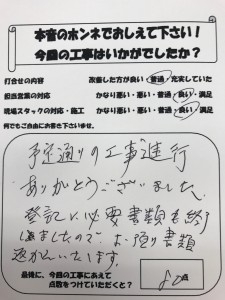 本音のホンネでおしえて下さい！
今回の工事はいかがでしたか？
打合せの内容 改善した方が良い・普通・充実していた
担当営業の対応 かなり悪い・悪い・普通・良い・満足
現場スタッフの対応・施工 かなり悪い・悪い・普通・良い・満足
何でもご自由にお書き下さいませ。
予定通りの工事進行
ありがとうございました。
登記に必要書類も終り
しましたので、お預り書類
返かいたします。
最後に、今回の工事にあえて
点数をつけていただくと？ 80点